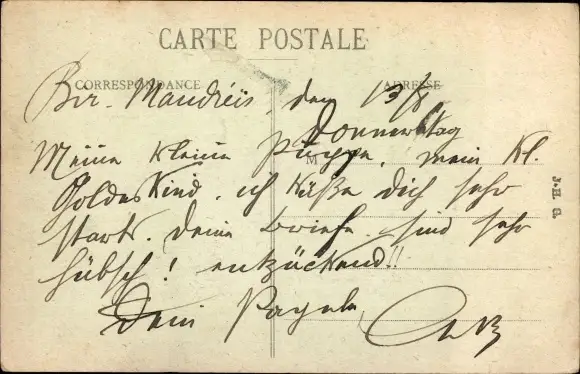 CARTE POSTALE
CORRESPONDANCE ADRESSE
Bir-Mandreïs, den 13/8.
Donnerstag
M
Meine kleine Puppe, mein kl.
Goldeskind. ich küße Dich sehr
stark. Deine Briefe sind sehr
hübsch! entzückend!!
Dein
J.-H. G.